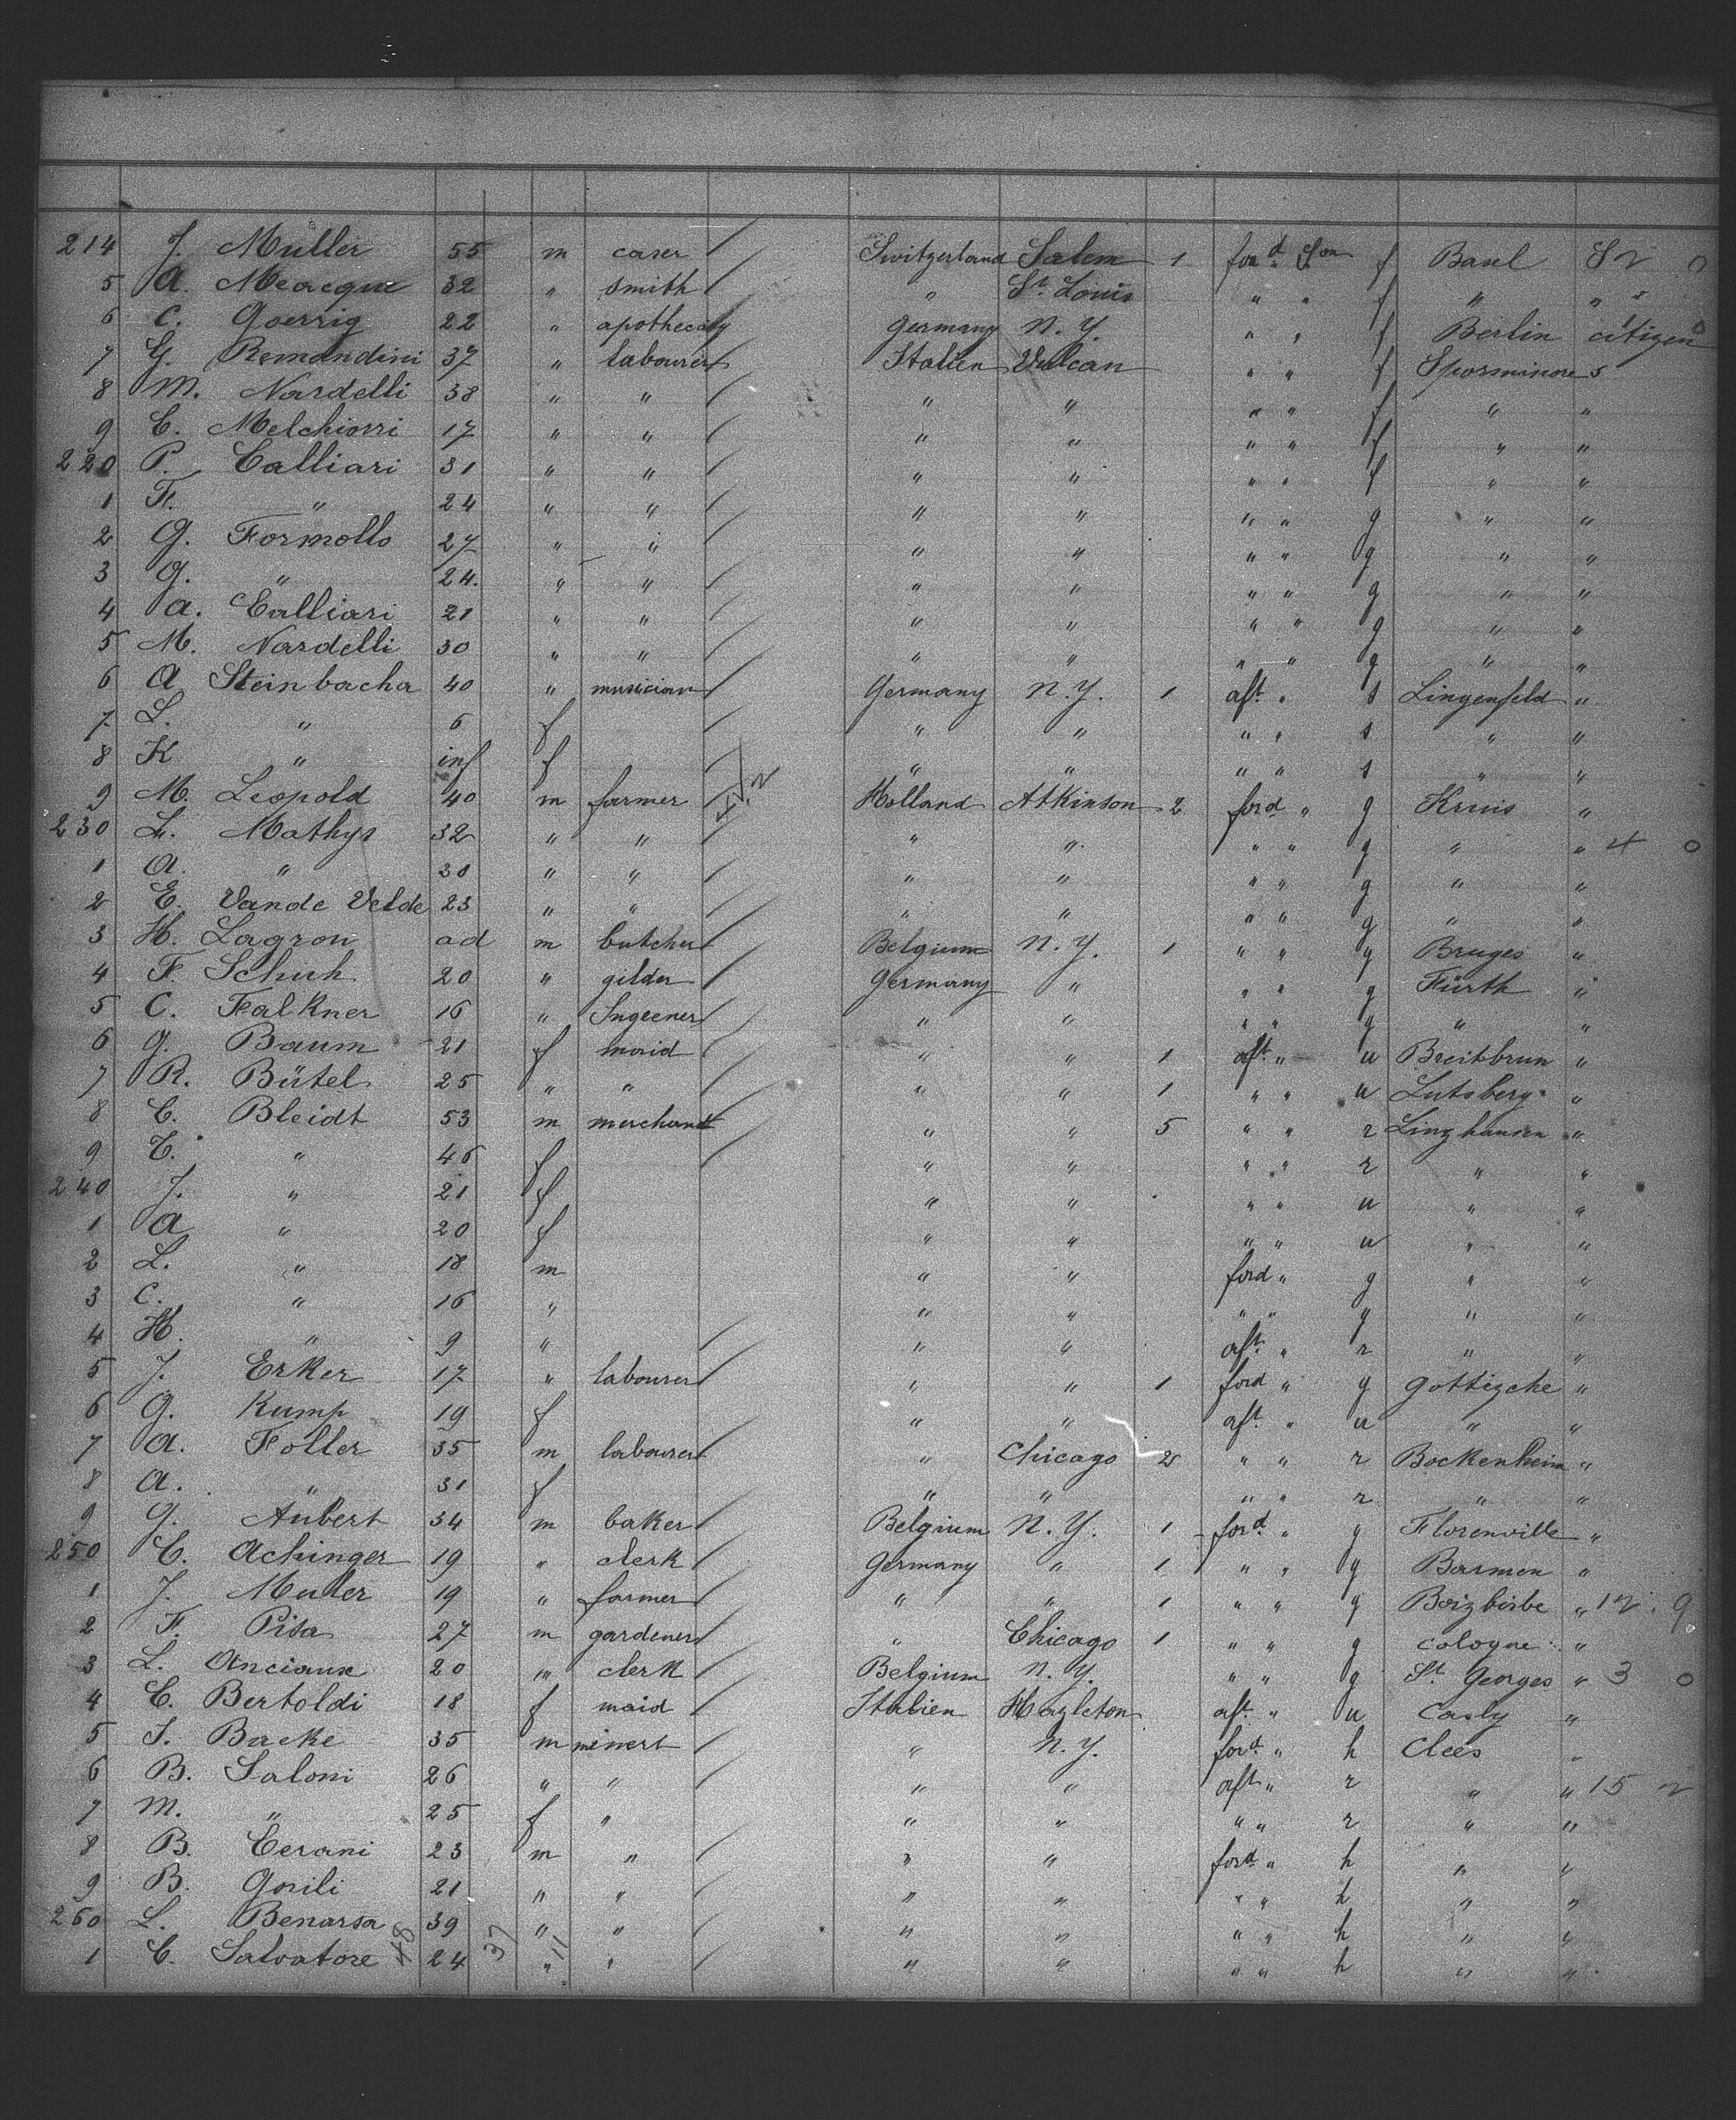 214 J. Müller 55 m caser Switzerland Salem 1 ford Son f Basel S 2 0
5 A. Meacque 32 " smith " St. Louis " " f " " s
6 C. Goerrig 22 " apothecary Germany N.Y. " " f Berlin citizen 0
7 G. Remondini 37 " labourer Italien Vulcan " " f Sporminore s
8 M. Nardelli 38 " " " " " " f " "
9 C. Melchiorri 17 " " " " " " f " "
220 P. Calliari 31 " " " " " " f " "
1 F. " 24 " " " " " " g " "
2 G. Formollo 27 " " " " " " g " "
3 G. " 24. " " " " " " g " "
4 A. Calliari 21 " " " " " " g " "
5 M. Nardelli 30 " " " " " " g " "
6 A Steinbacha 40 " musician Germany N.Y. 1 aft. " s Lingenfeld "
7 L. " 6 f " " " " s " "
8 K " inf f " " " " s " "
9 M. Leopold 40 m farmer Holland Atkinson 2 ford " g Kruis "
230 L. Mathys 32 " " " " " " g " " 4 0
1 A. " 30 " " " " " " g " "
2 E. Vande Velde 23 " " " " " " g " "
3 H. Lagron ad m butcher Belgium N.Y. 1 " " g Bruges "
4 F. Schuh 20 " gilder Germany " " " g Fürth "
5 C. Falkner 16 " Ingeener " " " " g " "
6 G. Baum 21 f maid " " 1 aft. " u Breitbrun "
7 R. Bütel 25 " " " " 1 " " u Lutsberg "
8 C. Bleidt 53 m merchant " " 5 " " r Linghausen "
9 C. " 46 f " " " " r " "
240 J. " 21 f " " " " u " "
1 A " 20 f " " " " u " "
2 L. " 18 m " " ford " g " "
3 C. " 16 " " " " " g " "
4 H. " 9 " " " aft. " r " "
5 J. Erker 17 " labourer " " 1 ford " g Gottizche "
6 G. Kump 19 f " " aft. " u " "
7 A. Foller 35 m labourer " Chicago 2 " " r Bockenheim "
8 A. " 31 f " " " " r " "
9 G. Aubert 34 m baker Belgium N.Y. 1 ford. " g Florenville "
250 C. Achinger 19 " clerk Germany " 1 " " g Barmen "
1 J. Muller 19 " farmer " " 1 " " g Boizbirbe " 12. 9
2 F. Pisa 27 m gardener " Chicago 1 " " g Cologne "
3 L. Anciaux 20 " clerk Belgium N.Y. " " g St. Georges " 3 0
4 C. Bertoldi 18 f maid Italien Hazleton aft. " u Casly "
5 S. Backe 35 m minert " N.Y. ford. " h Clees "
6 B. Saloni 26 " " " " aft. " r " " 15 2
7 M. " 25 f " " " " " r " "
8 B. Cerani 23 m " " " ford. " h " "
9 B. Gorili 21 " " " " " " h " "
260 L. Benarsa 39 " " " " " " h " "
1 C. Salvatore 24 " " " " " " h " "
48 37 11